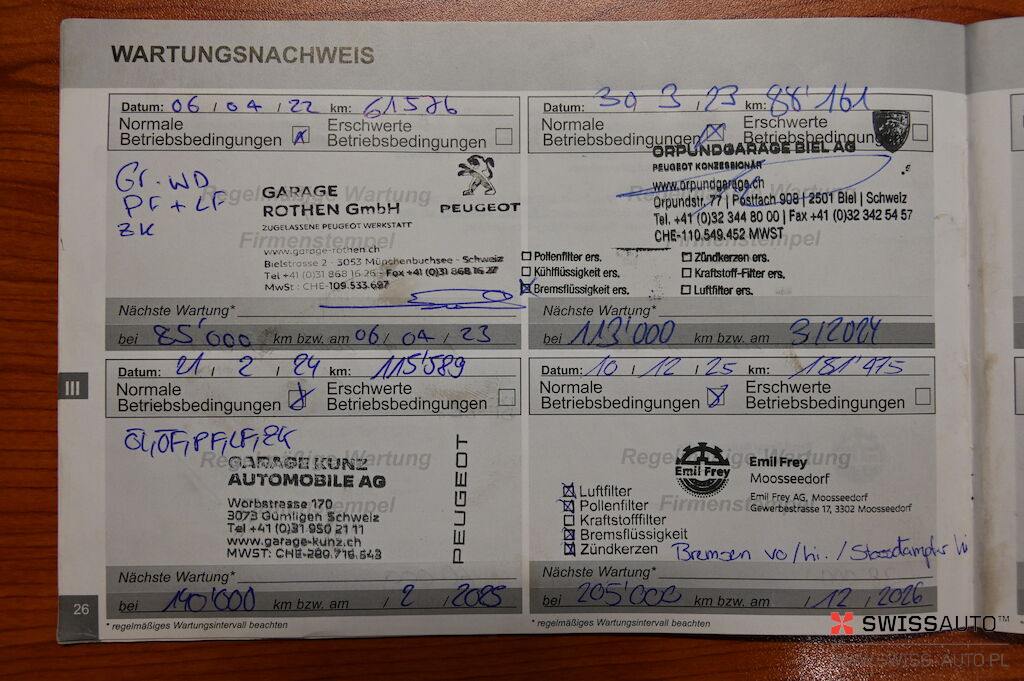 WARTUNGSNACHWEIS
Datum: 06 / 04 / 22 km: 61576
Normale Betriebsbedingungen
Erschwerte Betriebsbedingungen
Gr. WD
PF + LF
ZK
Regelmäßige Wartung
Firmenstempel
GARAGE
ROTHEN GmbH
ZUGELASSENE PEUGEOT WERKSTATT
www.garage-rothen.ch
Bielstrasse 2 - 3053 Münchenbuchsee - Schweiz
Tel +41 (0)31 868 16 26 - Fax +41 (0)31 868 16 27
MwSt : CHE-109.533.697
PEUGEOT
Nächste Wartung*
bei 85'000 km bzw. am 06 / 04 / 23
Datum: 30 3 / 23 km: 88'161
Normale Betriebsbedingungen
Erschwerte Betriebsbedingungen
ORPUNDGARAGE BIEL AG
PEUGEOT KONZESSIONÄR
www.orpundgarage.ch
Orpundstr. 77 | Postfach 908 | 2501 Biel | Schweiz
Tel. +41 (0)32 344 80 00 | Fax +41 (0)32 342 54 57
CHE-110.549.452 MWST
Firmenstempel
Pollenfilter ers.
Kühlflüssigkeit ers.
Bremsflüssigkeit ers.
Zündkerzen ers.
Kraftstoff-Filter ers.
Luftfilter ers.
Nächste Wartung*
bei 113'000 km bzw. am 3/2024
III
Datum: 21 / 2 / 24 km: 115'589
Normale Betriebsbedingungen
Erschwerte Betriebsbedingungen
Öl, ÖF, PF, LF, ZK
Regelmäßige Wartung
GARAGE KUNZ
AUTOMOBILE AG
Worbstrasse 170
3073 Gümligen Schweiz
Tel +41 (0)31 950 21 11
www.garage-kunz.ch
MWST: CHE-289.716.543
PEUGEOT
Nächste Wartung*
bei 140'000 km bzw. am / 2 / 2025
* regelmäßiges Wartungsintervall beachten
Datum: 10 / 12 / 25 km: 181'475
Normale Betriebsbedingungen
Erschwerte Betriebsbedingungen
Regelmäßige Wartung
Firmenstempel
Emil Frey
Emil Frey
Moosseedorf
Emil Frey AG, Moosseedorf
Gewerbestrasse 17, 3302 Moosseedorf
Luftfilter
Pollenfilter
Kraftstofffilter
Bremsflüssigkeit
Zündkerzen
Bremsen vo/hi. / Stossdämpfer hi
Nächste Wartung*
bei 205'000 km bzw. am / 12 / 2026
* regelmäßiges Wartungsintervall beachten
26
SWISSAUTO™
WWW.SWISS-AUTO.PL